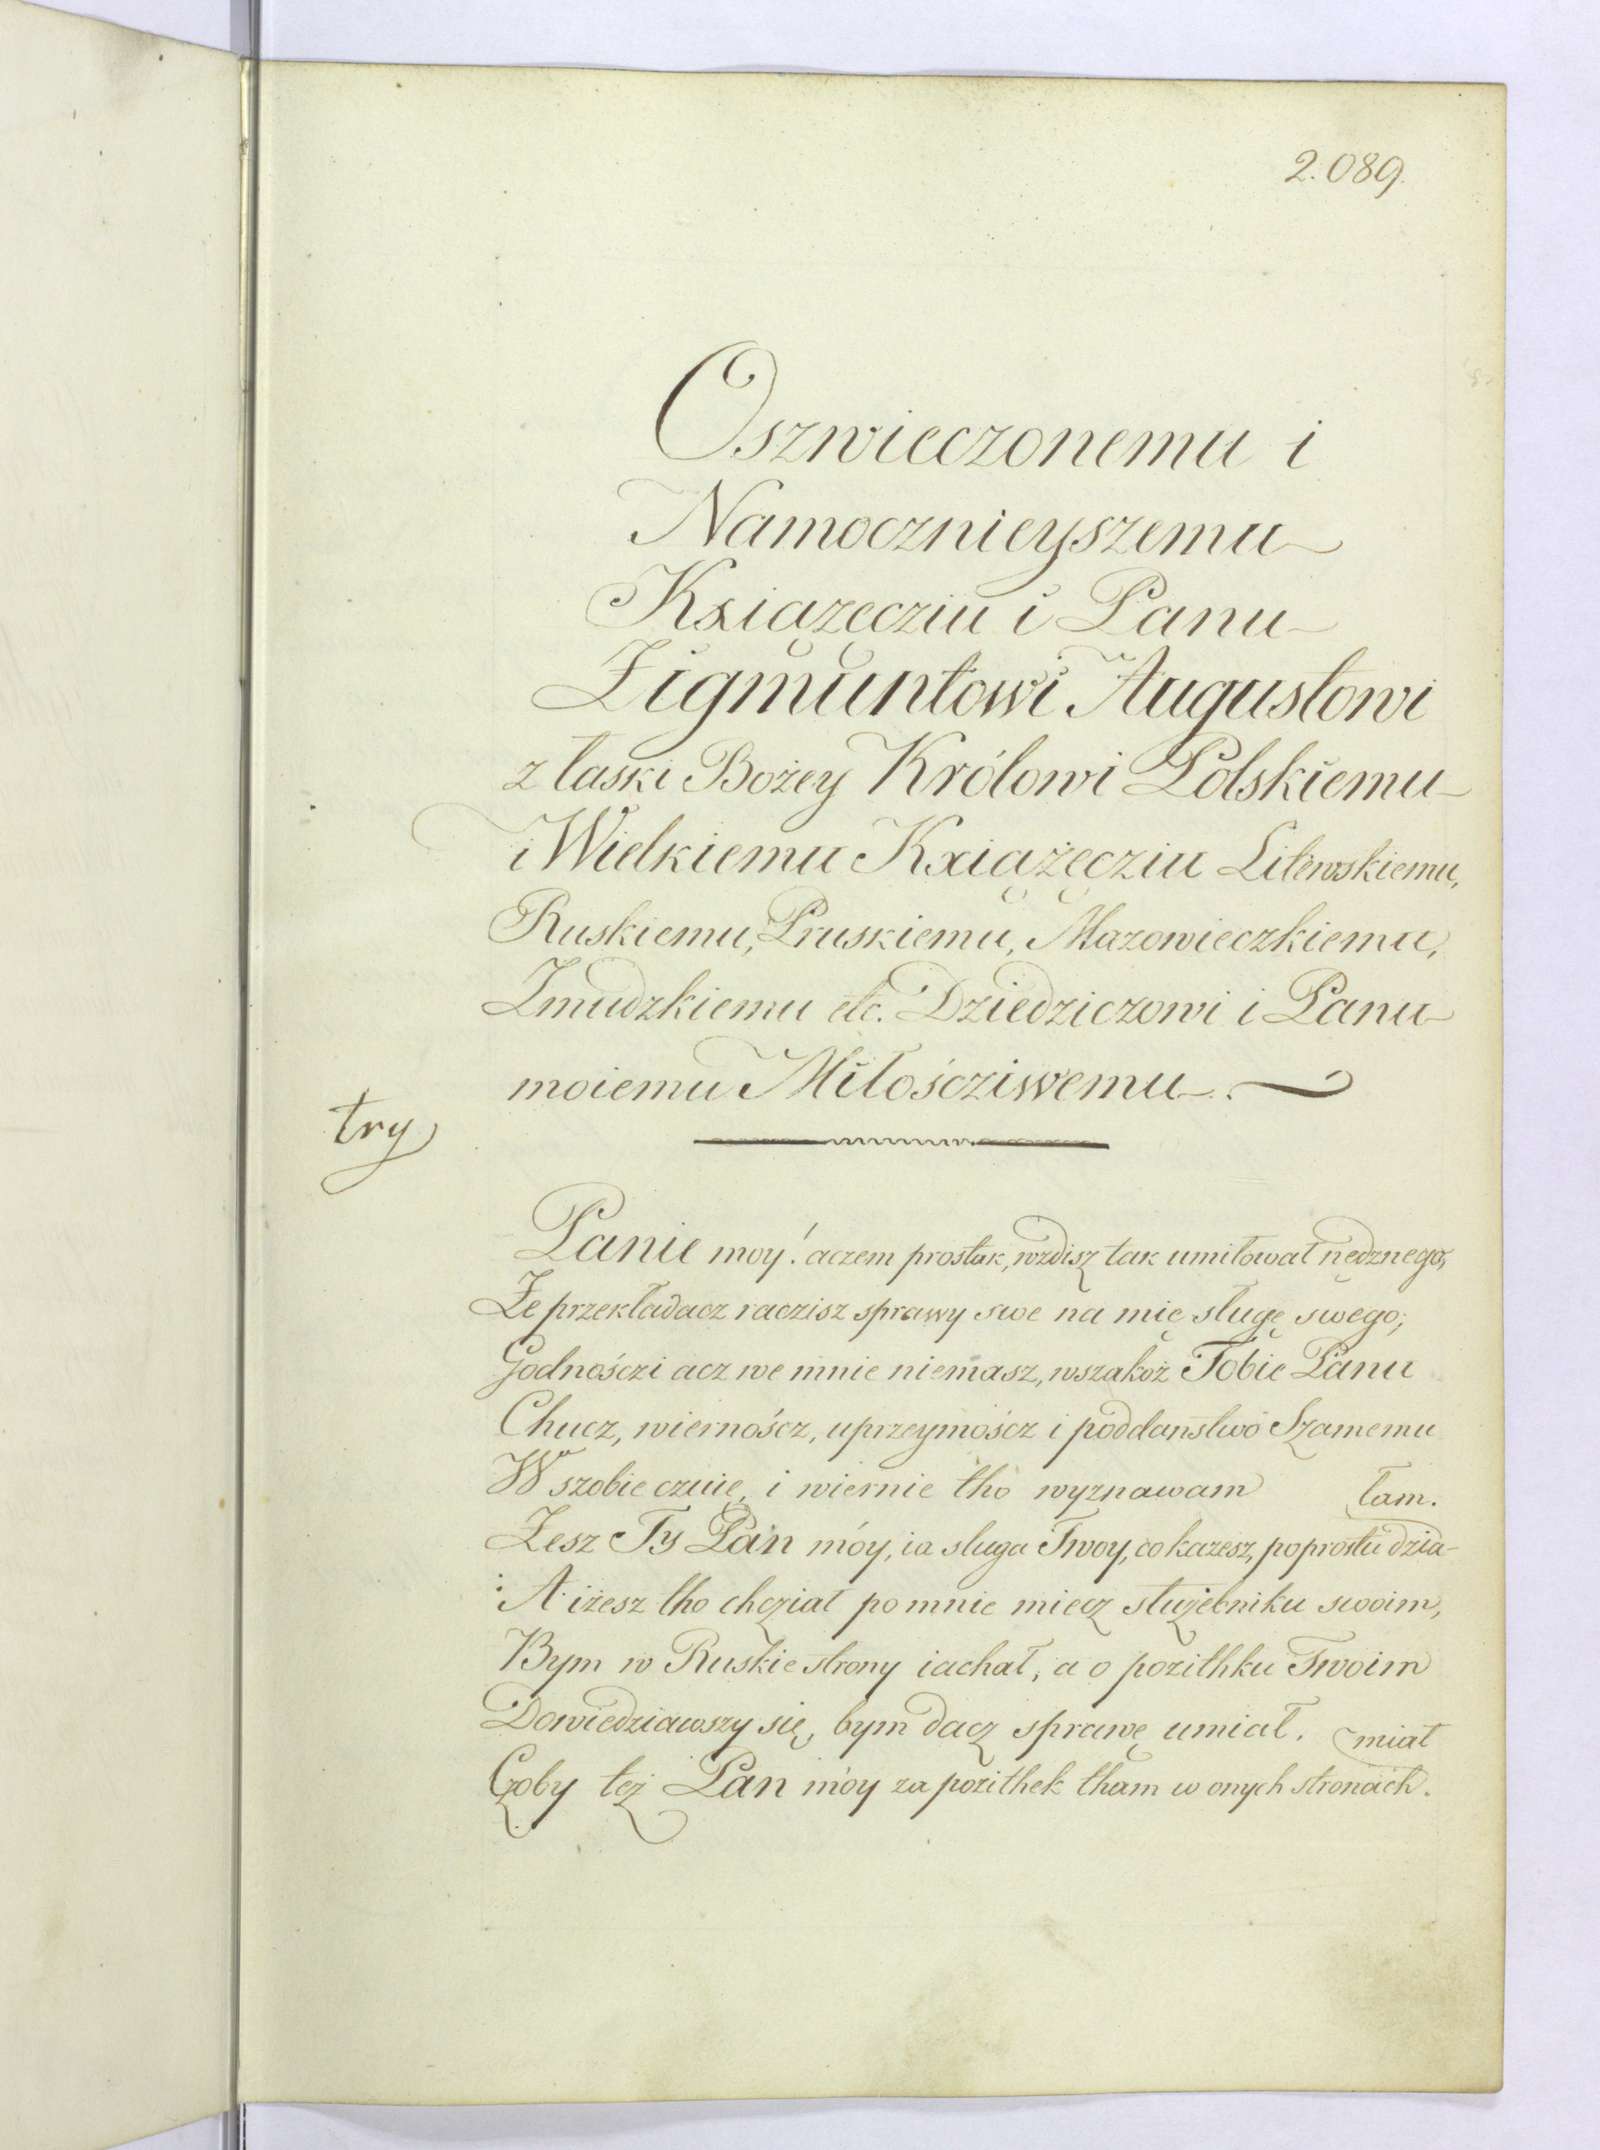 2.089.
Oszwieczonemu i
Namocznieyszemu
Książęcziu i Panu
Zigmuntowi Augustowi
z łaski Bożey Królowi Polskiemu
i Wielkiemu Kxiążęcziu Litewskiemu,
Ruskiemu, Pruskiemu, Mazowieczkiemu,
Zmudzkiemu etc. Dziedziczowi i Panu
moiemu Miłościwemu.
try
Panie moy! aczem prostak, wzdisz tak umiłował nędznego,
Że przekładacz raczisz sprawy swe na mię sługę swego;
Godnośczi acz we mnie niemasz, wszakoż Tobie Panu
Chucz, wiernoścz, uprzeymoścz i poddanstwo Szamemu
W szobie czuię, i wiernie tho wyznawam
łam.
Żesz Ty Pan móy, ia sluga Twoy, co kazesz, poprostu dzia-
A iżesz tho chcział po mnie miecz służebniku swoim,
Bym w Ruskie strony iachał, a o pozithku Twoim
Dowiedziawszy się, bym dacz sprawę umiał.
miał
Czoby też Pan móy za pozithek tham w onych stronach.